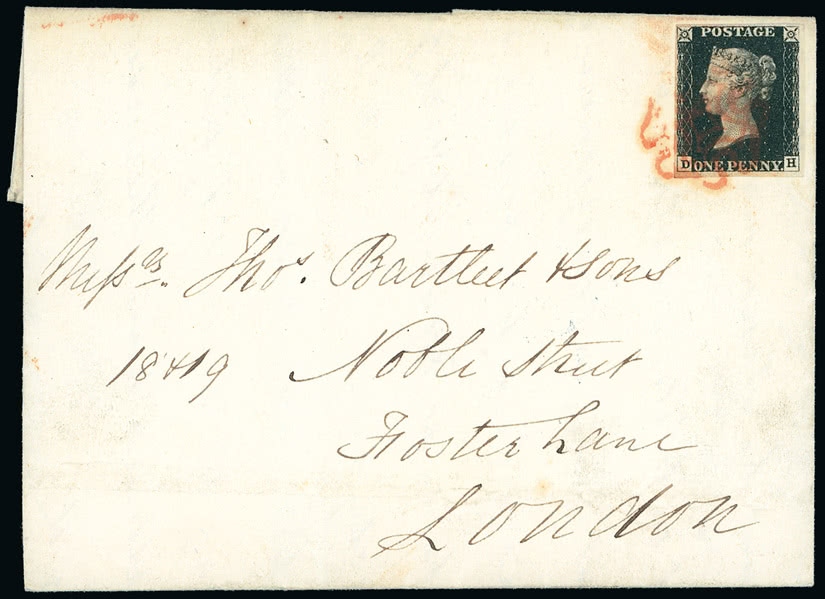 POSTAGE
D ONE PENNY. H
Messrs. Thos. Bartleet & Sons
18 & 19 Noble Street
Foster Lane
London